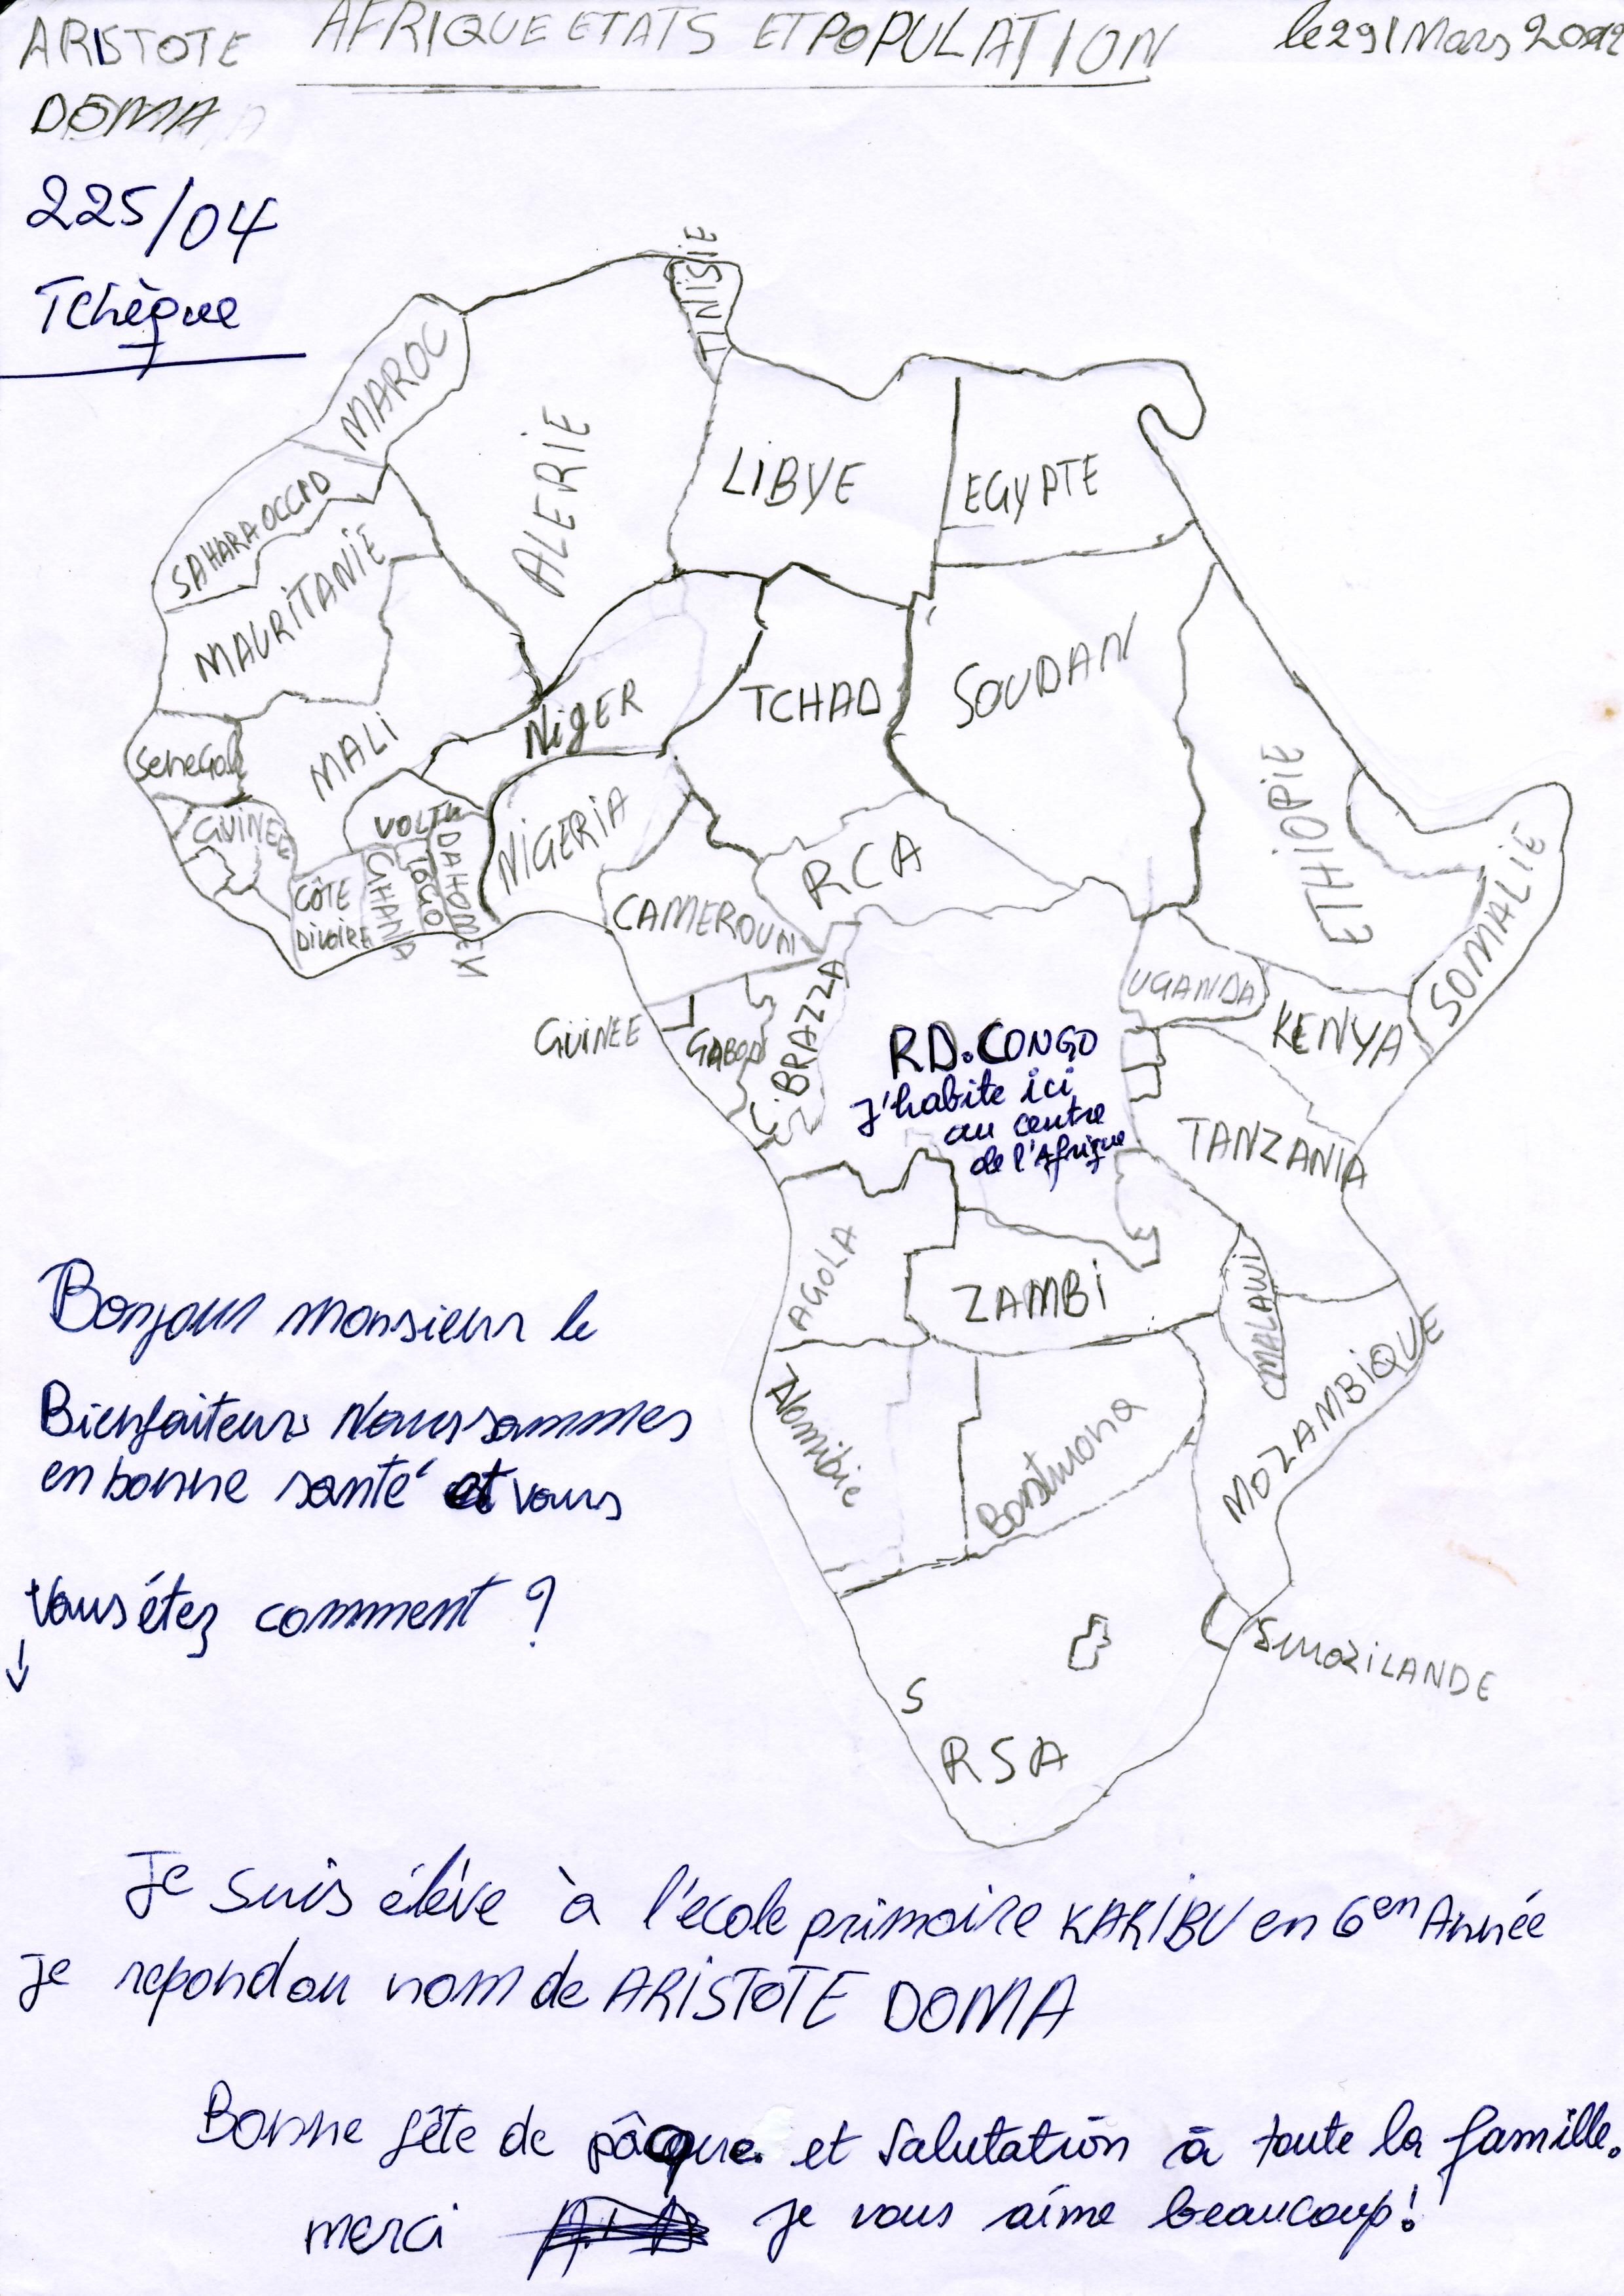 ARISTOTE
DOMA
225/04
Tchèque
AFRIQUE ETATS ET POPULATION
le 29/Mars 2012
TUNISIE
MAROC
ALERIE
LIBYE
EGYPTE
SAHARA OCCAD
MAURITANIE
MALI
NigER
TCHAD
SOUDAN
ETHIOPIE
SOMALIE
SeneGal
GUINEE
CÔTE
DiVOiRE
VOLTA
GHANA
TOGO
DAHOMEY
NiGERiA
CAMEROUN
RCA
GUiNEE
GABON
C. BRAZZA
UGANDA
KENYA
RD.CONGO
J'habite ici
au centre
de l'Afrique
TANZANIA
AGOLA
ZAMBi
MALAWI
MOZAMBiQUE
Namibie
Bostwana
SwaziLANDE
S
RSA
Bonjour monsieur le
Bienfaiteur Nous sommes
en bonne santé et vous
Vous étez comment ?
Je suis élève à l'école primaire KARIBU en 6en Année
Je repond au nom de ARISTOTE DOMA
Bonne fête de pâque. et Salutation à toute la famille.
merci Je vous aime beaucoup!